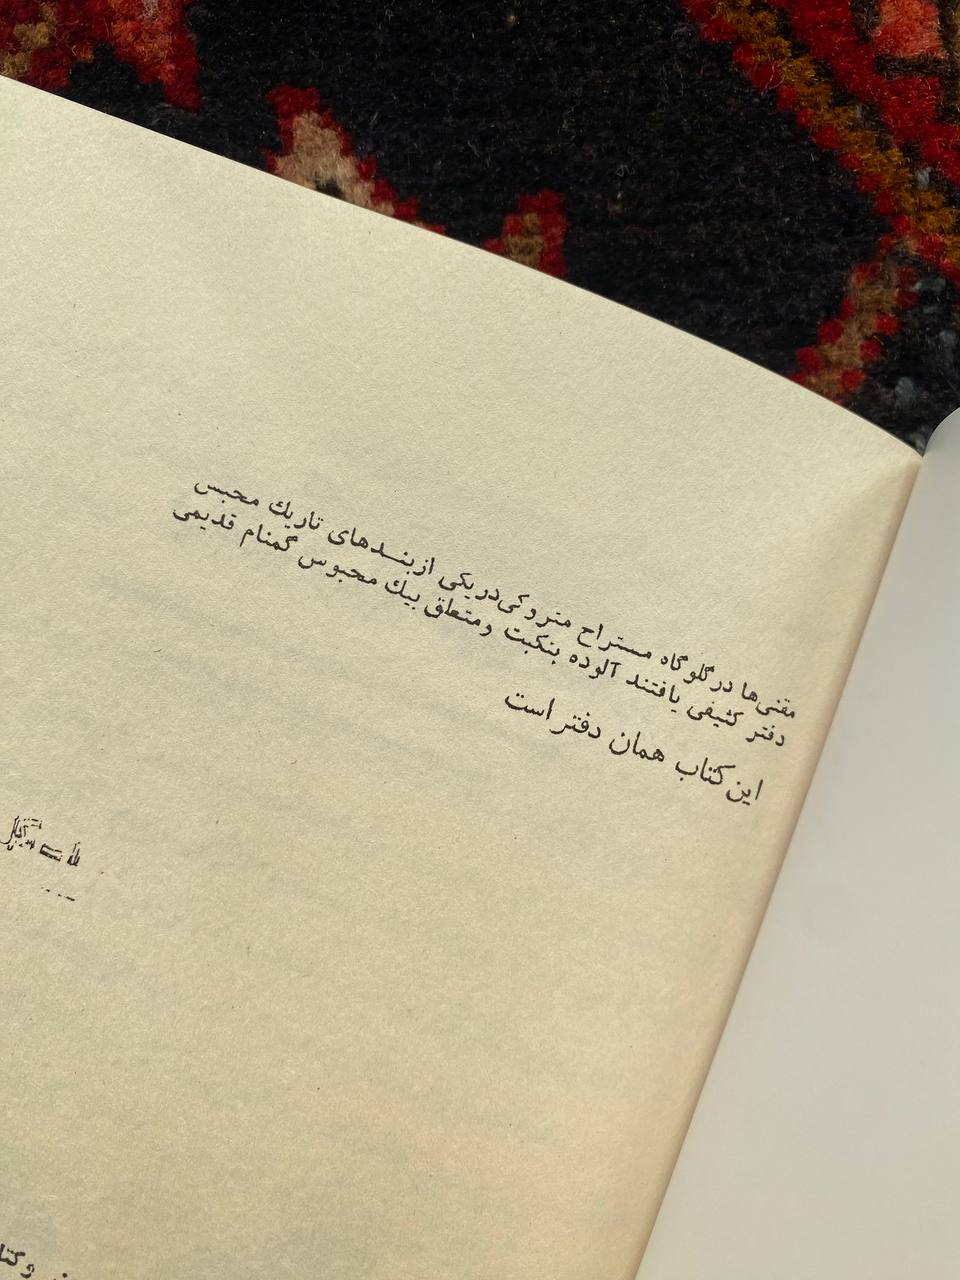 مقنی‌ها در گلوگاه مستراح متروکی در یکی از بندهای تاریك محبس
دفتر کثیفی یافتند آلوده بنکبت و متعلق بیك محبوس گمنام قدیمی
این کتاب همان دفتر است